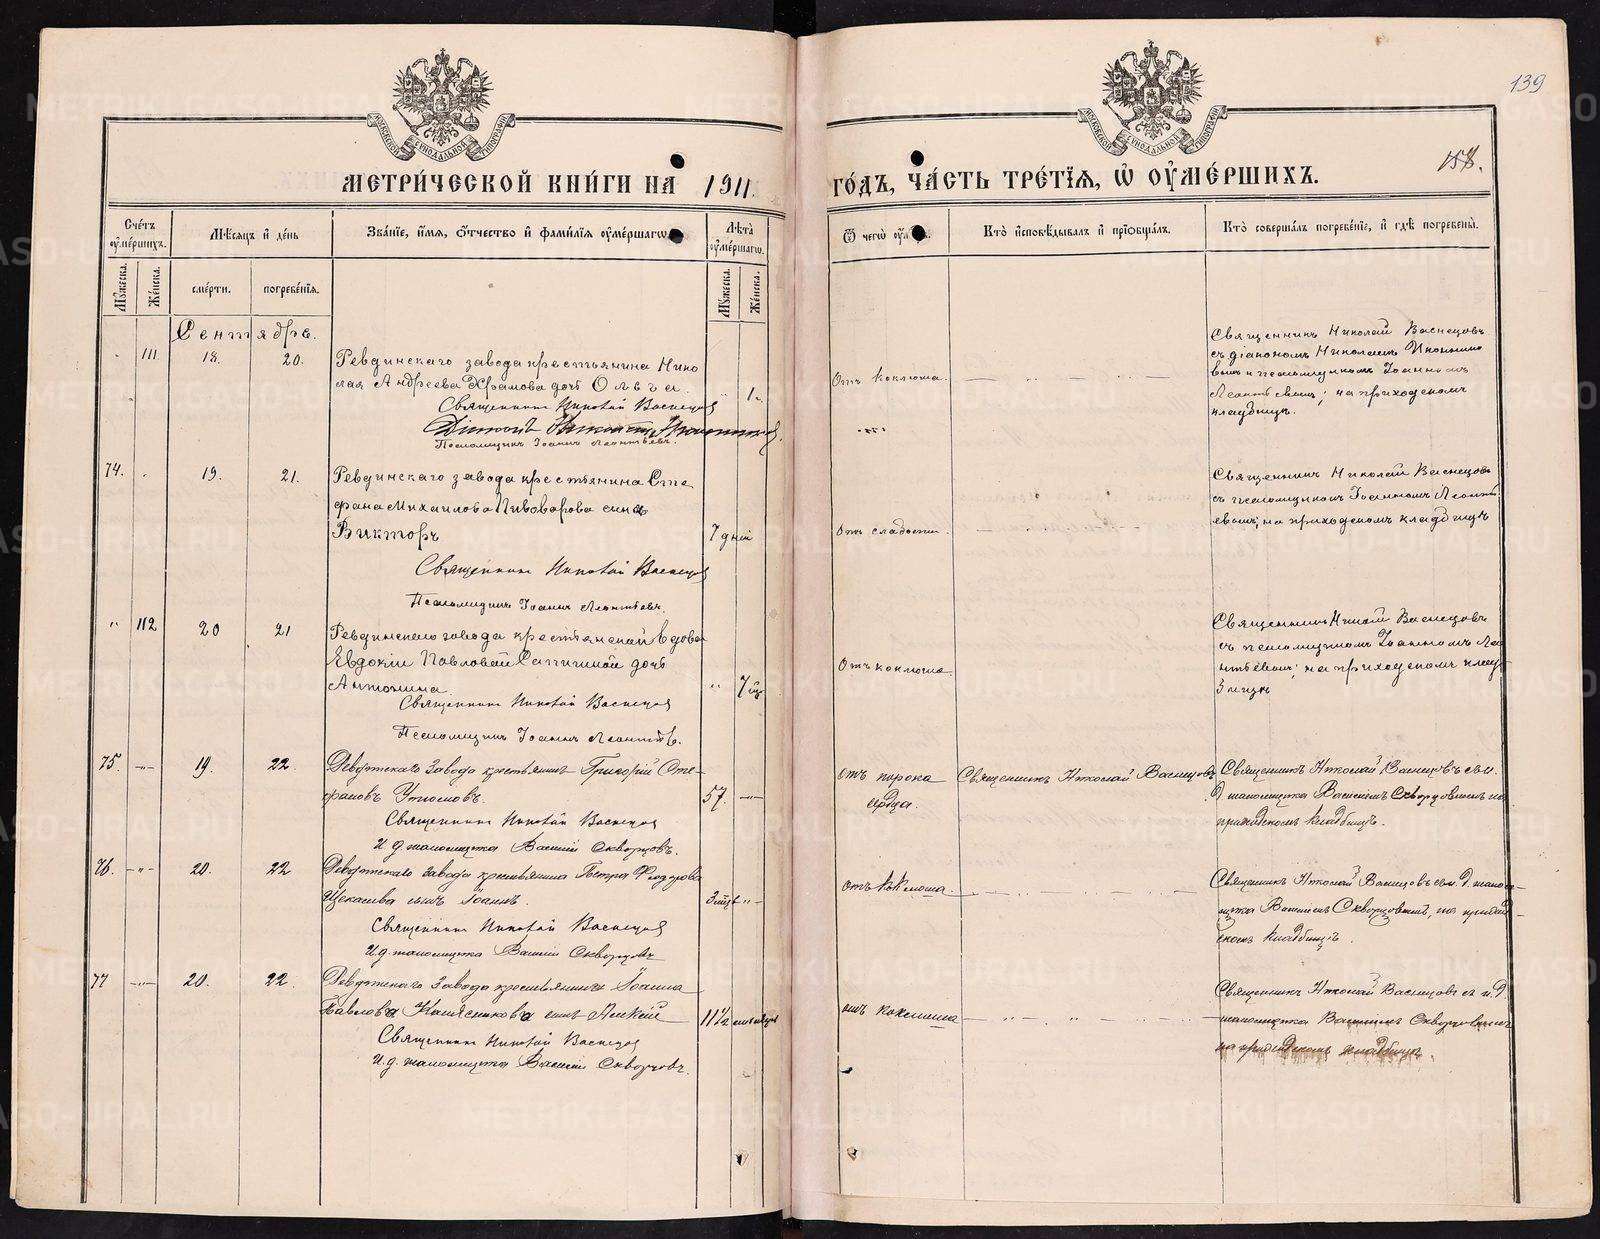 139
158.
МЕТРИ́ЧЕСКОЙ КНИ́ГИ НА 1911. ГО́ДЪ, ЧА́СТЬ ТРЕ́ТІЯ, Ѿ ОУМЕ́РШИХЪ.
Сче́тъ оумершихъ.
Мѣсяцъ и день
Зва́ніе, и́мя, о́тчество и фами́лія оуме́ршагѡ.
Лѣта оумершагѡ.
Ѿ чегѡ
Кто̀ исповѣдывалъ и пріобщалъ.
Кто̀ соверша́лъ погребе́ніе, и гдѣ̀ погребены̀.
Мꙋжеска.
Же́нска.
сме́рти.
погребе́нія.
Мꙋжеска.
Же́нска.
Сентябрь.
111 18. 20. Ревдинскаго завода крестьянина Нико
лая Андреева Храмова дочь Ольга 1 г.
Священникъ Николай Васнецовъ
Псаломщикъ Іоаннъ Леонтьевъ.
Отъ коклюша.
Священникъ Николай Васнецовъ
съ діакономъ Николаемъ
и псаломщикомъ Іоанномъ
Леонтьевымъ; на приходскомъ
кладбищѣ.
74. 19. 21. Ревдинскаго завода крестьянина Сте
фана Михаилова Пивоварова сынъ
Викторъ 7 дней
Священникъ Николай Васнецовъ
Псаломщикъ Іоаннъ Леонтьевъ.
Отъ слабости.
Священникъ Николай Васнецовъ
съ псаломщикомъ Іоанномъ Леонть
евымъ; на приходскомъ кладбищѣ
112 20 21 Ревдинскаго завода крестьянской вдовы
Евдокіи Павловой дочь
Антонина 7 мц.
Священникъ Николай Васнецовъ
Псаломщикъ Іоаннъ Леонтьевъ.
Отъ коклюша
Священникъ Николай Васнецовъ
съ псаломщикомъ Іоанномъ Лео
нтьевымъ; на приходскомъ клад
бищѣ
75. 19. 22. Ревдинскаго Завода крестьянинъ Григорій Сте-
фановъ Утюмовъ. 57.
Священникъ Николай Васнецовъ
И. д. псаломщика Василій Скворцовъ.
отъ порока
сердца.
Священникъ Николай Васнецовъ
Священникъ Николай Васнецовъ съ и.
д. псаломщика Василіемъ Скворцовымъ на
приходскомъ кладбищѣ.
76. 20. 22 Ревдинскаго Завода крестьянина Петра Ѳедорова
сынъ Іоаннъ. 3 мцѣ
Священникъ Николай Васнецовъ
И. д. псаломщика Василій Скворцовъ
отъ коклюша.
Священникъ Николай Васнецовъ съ и. д. псалом-
щика Василіемъ Скворцовымъ, на приход-
скомъ кладбищѣ.
77 20. 22. Ревдинскаго Завода крестьянина Іоанна
Павлова сынъ Алексій 11½ мѣсяцевъ
Священникъ Николай Васнецовъ
И. д. псаломщика Василій Скворцовъ.
отъ коклюша
Священникъ Николай Васнецовъ съ и. д.
псаломщика Василіемъ Скворцовымъ
на приходскомъ кладбищѣ.
METRIKI.GASO-URAL.RU